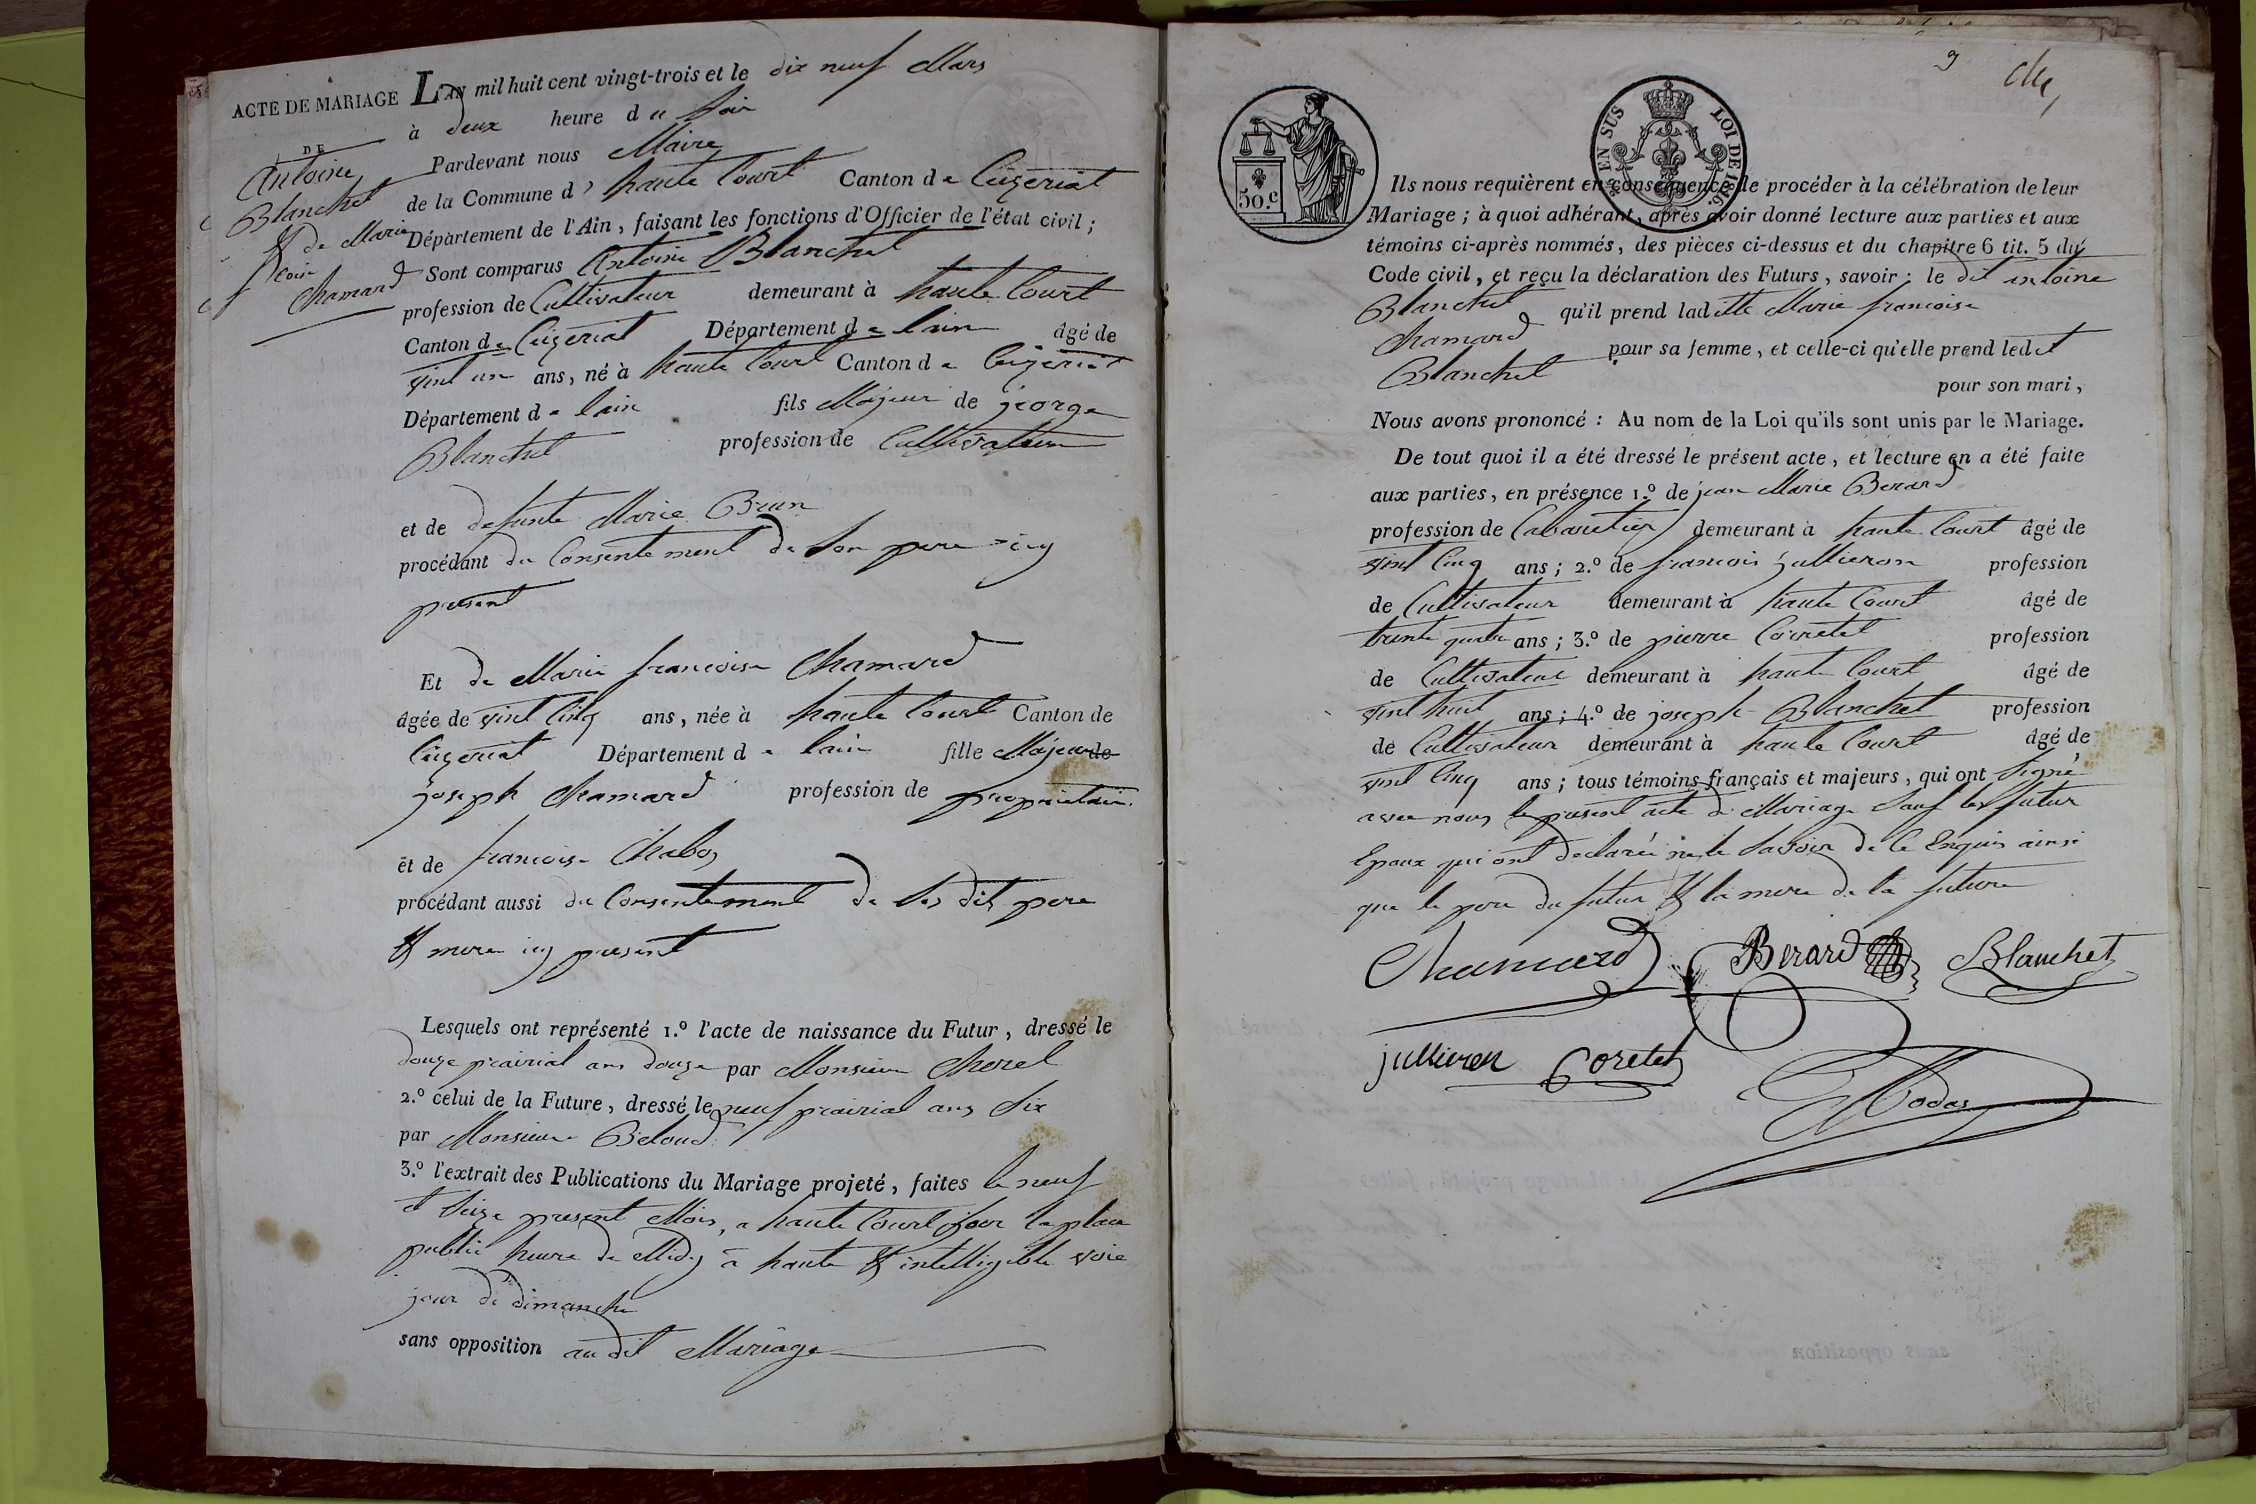 ACTE DE MARIAGE
DE
Antoine
Blanchet
& de Marie
fcoise
Chamard
L'AN mil huit cent vingt-trois et le dix neuf Mars
à deux heure du soir
Pardevant nous Maire
de la Commune d'haute Court Canton de Ceÿzeriat
Département de l'Ain, faisant les fonctions d'Officier de l'état civil;
Sont comparus Antoine Blanchet
profession de Cultivateur demeurant à haute Court
Canton de Ceÿzeriat Département de lain âgé de
vint un ans, né à haute Court Canton de Ceÿzeriat
Département de lain fils Majeur de george
Blanchet profession de Cultivateur
et de defunte Marie Brun
procédant du Consentement de son pere icy
present
Et de Marie francoise Chamard
âgée de vint cinq ans, née à haute Court Canton de
Ceÿzeriat Département de lain fille Majeur de
joseph Chamard profession de propriétaire
et de francoise Chabos
procédant aussi du Consentement de ses dits pere
& mere icy present
Lesquels ont représenté 1.º l'acte de naissance du Futur, dressé le
douze prairial ans douze par Monsieur Morel
2.º celui de la Future, dressé le neuf prairial ans Six
par Monsieur Beloud
3.º l'extrait des Publications du Mariage projeté, faites le neuf
et Seize present Mois, a haute Court sur la place
public heure de Midy à haute & intelligible voie
jour de dimanche
sans opposition au dit Mariage
9
50.c
EN SUS
LOI DE 1816.
Ils nous requièrent en conséquence de procéder à la célébration de leur
Mariage; à quoi adhérant, après avoir donné lecture aux parties et aux
témoins ci-après nommés, des pièces ci-dessus et du chapitre 6 tit. 5 du
Code civil, et reçu la déclaration des Futurs, savoir: le dit antoine
Blanchet qu'il prend laditte Marie francoise
Chamard pour sa femme, et celle-ci qu'elle prend ledit
Blanchet pour son mari,
Nous avons prononcé: Au nom de la Loi qu'ils sont unis par le Mariage.
De tout quoi il a été dressé le présent acte, et lecture en a été faite
aux parties, en présence 1.º de jean Marie Berard
profession de Cabaretier demeurant à haute Court âgé de
vint cinq ans; 2.º de francois jullieron profession
de Cultivateur demeurant à haute Court âgé de
trente quatre ans; 3.º de pierre Corretel profession
de Cultivateur demeurant à haute Court âgé de
vint huit ans; 4.º de joseph Blanchet profession
de Cultivateur demeurant à haute Court âgé de
vint cinq ans; tous témoins français et majeurs, qui ont Signé
avec nous le present acte de Mariage Sauf les futur
Epoux qui ont declarée ne le Savoir de ce Enquis ainsi
que le pere du futur & la mere de la future
Chamard Berard Blanchet
jullieron Coretet
Rodas